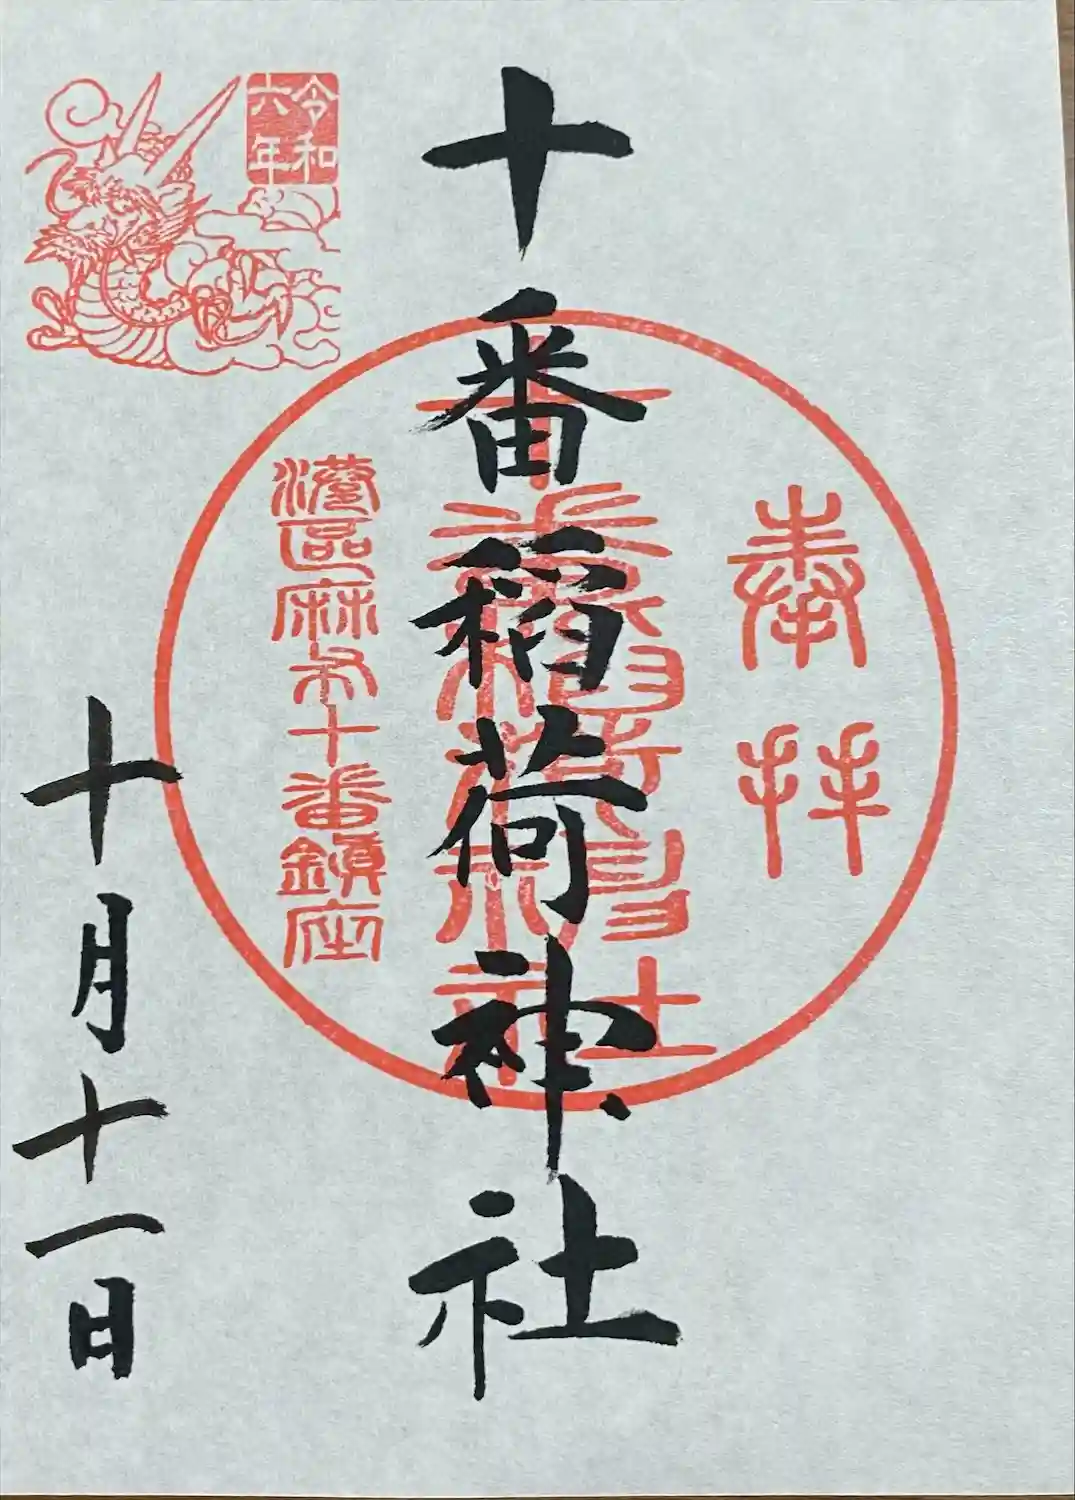 奉拝
十番稲荷神社
十番稲荷神社
港区麻布十番鎮座
令和六年
十月十一日